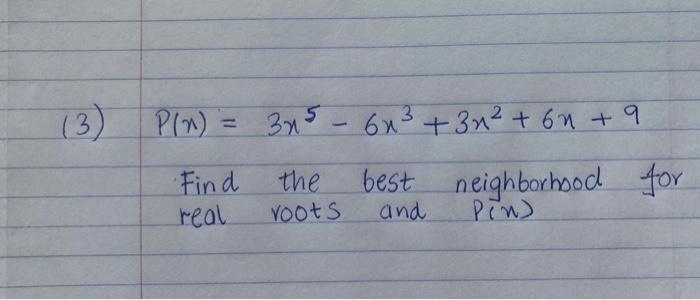 (3) P(x) = 3x⁵ - 6x³ + 3x² + 6x + 9
Find the best neighborhood for
real roots and P(x)